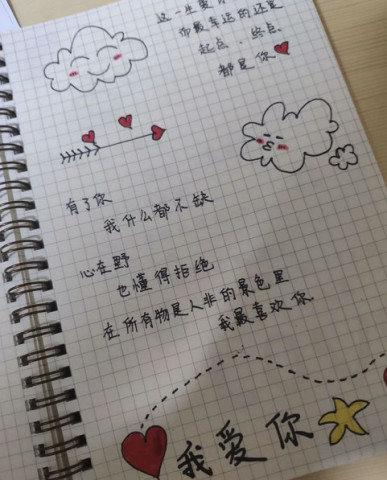 这一生要
而最幸运的还是
起点，终点
都是你
有了你
我什么都不缺
心在野
也懂得拒绝
在所有物是人非的景色里
我最喜欢你
我爱你